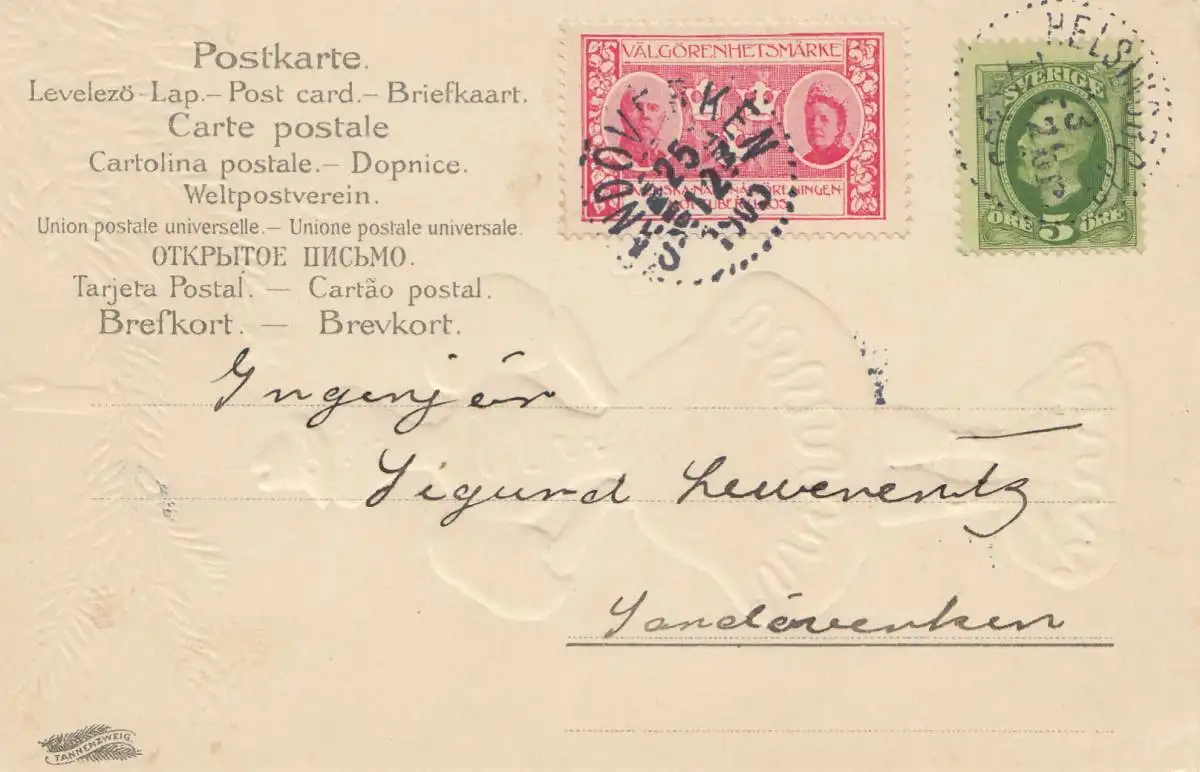 Postkarte.
Levelező-Lap.– Post card.– Briefkaart.
Carte postale
Cartolina postale.– Dopnice.
Weltpostverein.
Union postale universelle.– Unione postale universale.
ОТКРЫТОЕ ПИСЬМО.
Tarjeta Postal. — Cartão postal.
Brefkort. — Brevkort.
VÄLGÖRENHETSMÄRKE
SANDÖVERKEN
25
12
1905
SVERIGE
ÖRE 5 ÖRE
HELSINGBORG
23
Yngenjör
Sigurd Lewerentz
Sandöverken
TANNENZWEIG